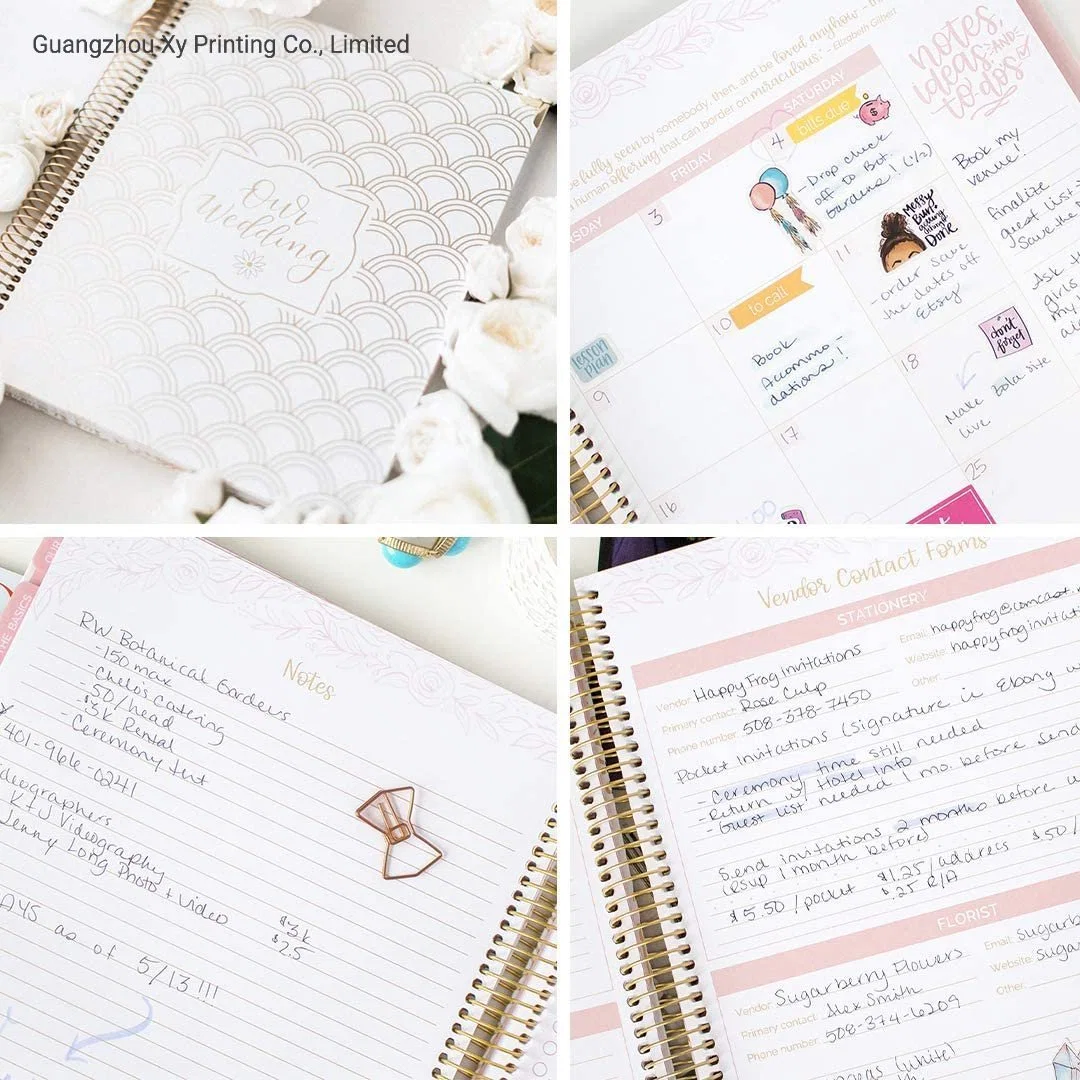 Guangzhou Xy Printing Co., Limited
Our
Wedding
be fully seen by somebody, then, and be loved anyhow - this
human offering that can border on miraculous." - Elizabeth Gilbert
FRIDAY
SATURDAY
3
4
bills due
-Drop check
off to Bot.
Gardens! (1/2)
lesson
plan
9
10
to call
Book
Accommo-
dations!
11
Messy
Bun
Done
-order save
the dates off
Etsy
16
17
18
don't
forget
Make
site
live
25
notes,
ideas, AND
to-dos
Book my
venue!
finalize
guest list
Save the
Ask
girls
my
THE BASICS
OUR
Notes
RW Botanical Gardens
-150 max
-Chelo's Catering
-50/head
-$3k Rental
-Ceremony tent
401-966-0241
Videographers
KTJ Videography
Jenny Long Photo + Video
$3k
$2.5
as of 5/13!!!
Vendor Contact Forms
STATIONERY
Vendor: Happy Frog Invitations
Email: happyfrog@comcast.
Primary contact: Rose Culp
Website: happyfroginvitat
Phone number: 508-378-7450
Other:
Pocket Invitations (Signature in Ebony w
-Ceremony time still needed
-Return w/ Hotel Info
-Guest list needed 1 mo. before send
Send invitations 2 months before
(RSVP 1 month before)
$5.50/pocket $1.25/address $.50/
$.25 R/A
FLORIST
Vendor: Sugarberry Flowers
Email: sugarb
Primary contact: Alex Smith
Website: sugar
Phone number: 508-374-6209
Other:
(white)